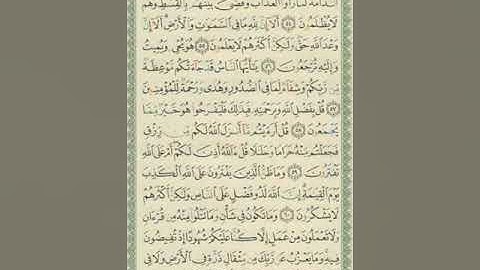 ٱلنَّدَامَةَ لَمَّا رَأَوُا۟ ٱلْعَذَابَ وَقُضِىَ بَيْنَهُم بِٱلْقِسْطِ وَهُمْ
لَا يُظْلَمُونَ ٥٤ أَلَآ إِنَّ لِلَّهِ مَا فِى ٱلسَّمَٰوَٰتِ وَٱلْأَرْضِ أَلَآ إِنَّ
وَعْدَ ٱللَّهِ حَقٌّ وَلَٰكِنَّ أَكْثَرَهُمْ لَا يَعْلَمُونَ ٥٥ هُوَ يُحْىِۦ وَيُمِيتُ
وَإِلَيْهِ تُرْجَعُونَ ٥٦ يَٰٓأَيُّهَا ٱلنَّاسُ قَدْ جَآءَتْكُم مَّوْعِظَةٌ
مِّن رَّبِّكُمْ وَشِفَآءٌ لِّمَا فِى ٱلصُّدُورِ وَهُدًى وَرَحْمَةٌ لِّلْمُؤْمِنِينَ
٥٧ قُلْ بِفَضْلِ ٱللَّهِ وَبِرَحْمَتِهِۦ فَبِذَٰلِكَ فَلْيَفْرَحُوا۟ هُوَ خَيْرٌ مِّمَّا
يَجْمَعُونَ ٥٨ قُلْ أَرَءَيْتُم مَّآ أَنزَلَ ٱللَّهُ لَكُم مِّن رِّزْقٍ
فَجَعَلْتُم مِّنْهُ حَرَامًا وَحَلَٰلًا قُلْ ءَآللَّهُ أَذِنَ لَكُمْ أَمْ عَلَى ٱللَّهِ
تَفْتَرُونَ ٥٩ وَمَا ظَنُّ ٱلَّذِينَ يَفْتَرُونَ عَلَى ٱللَّهِ ٱلْكَذِبَ
يَوْمَ ٱلْقِيَٰمَةِ إِنَّ ٱللَّهَ لَذُو فَضْلٍ عَلَى ٱلنَّاسِ وَلَٰكِنَّ أَكْثَرَهُمْ
لَا يَشْكُرُونَ ٦٠ وَمَا تَكُونُ فِى شَأْنٍ وَمَا تَتْلُوا۟ مِنْهُ مِن قُرْءَانٍ
وَلَا تَعْمَلُونَ مِنْ عَمَلٍ إِلَّا كُنَّا عَلَيْكُمْ شُهُودًا إِذْ تُفِيضُونَ
فِيهِ وَمَا يَعْزُبُ عَن رَّبِّكَ مِن مِّثْقَالِ ذَرَّةٍ فِى ٱلْأَرْضِ وَلَا فِى